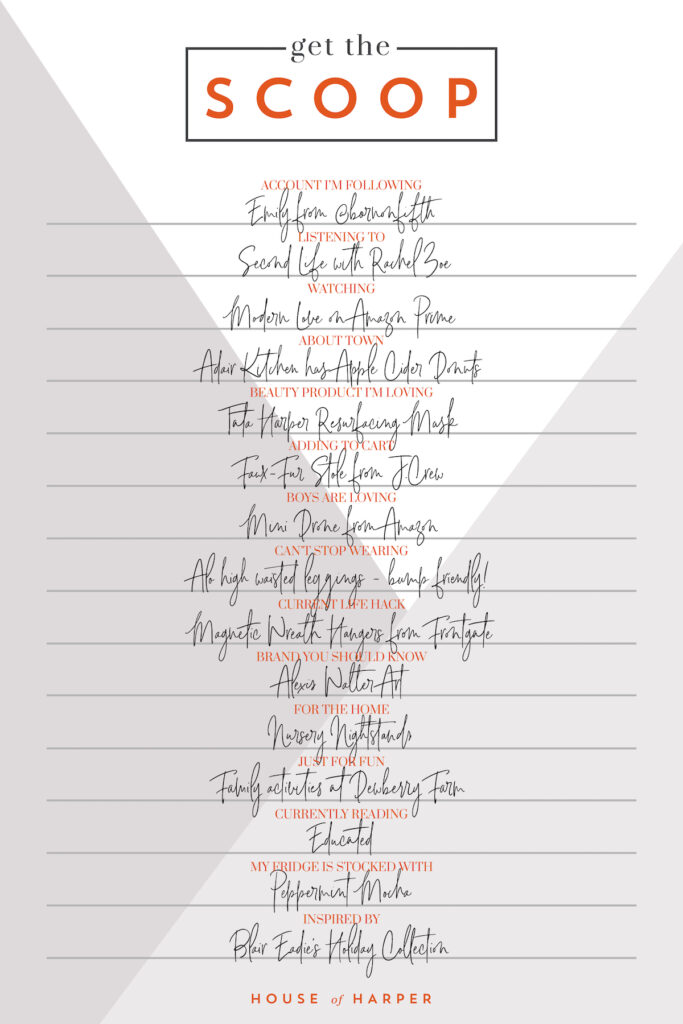 get the
SCOOP
ACCOUNT I'M FOLLOWING
Emily from @bornonfifth
LISTENING TO
Second Life with Rachel Zoe
WATCHING
Modern Love on Amazon Prime
ABOUT TOWN
Adair Kitchen has Apple Cider Donuts
BEAUTY PRODUCT I'M LOVING
Tata Harper Resurfacing Mask
ADDING TO CART
Faux-Fur Stole from J.Crew
BOYS ARE LOVING
Mini Drone from Amazon
CAN'T STOP WEARING
Alo high waisted leggings - bump friendly!
CURRENT LIFE HACK
Magnetic Wreath Hangers from Frontgate
BRAND YOU SHOULD KNOW
Alexis Walter Art
FOR THE HOME
Nursery Nightstands
JUST FOR FUN
Family activities at Dewberry Farm
CURRENTLY READING
Educated
MY FRIDGE IS STOCKED WITH
Peppermint Mocha
INSPIRED BY
Blair Eadie's Holiday Collection
HOUSE of HARPER